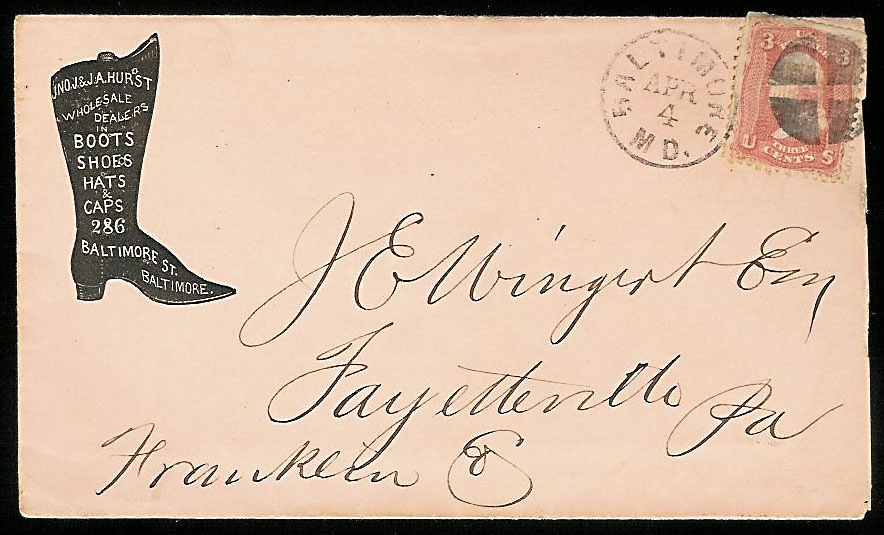 JNO. J. & J. A. HURST
WHOLESALE
DEALERS
IN
BOOTS
SHOES
HATS
&
CAPS
286
BALTIMORE ST.
BALTIMORE.
BALTIMORE
APR
4
MD.
3 3
U THREE S
CENTS
J E Wingert Esq
Fayetteville Pa
Franklin Co